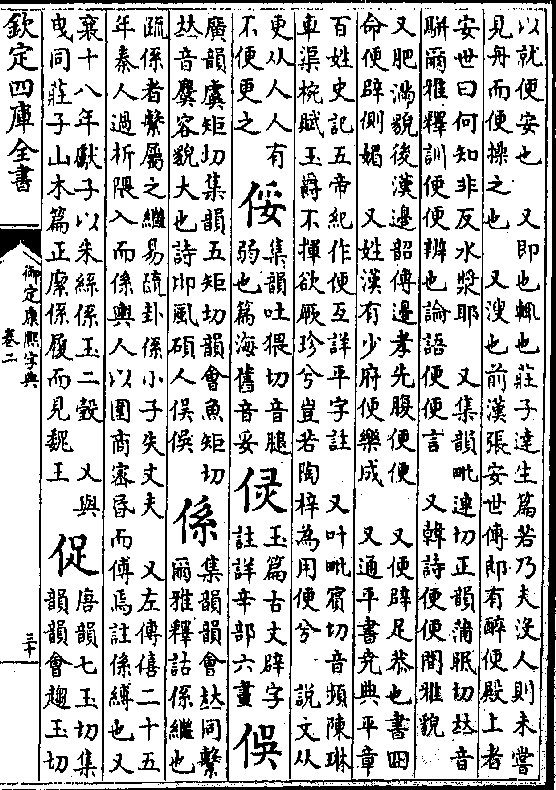 以就便安也　又即也輒也莊子達生篇若乃夫没人則未嘗
見舟而便操之也　又溲也前漢張安世傳郎有醉便殿上者
安世曰何知非反水漿耶　又集韻毗連切正韻蒲眠切𠀤音
騈爾雅釋訓便便辨也論語便便言　又韓詩便便閒雅貌
又肥滿貌後漢邊韶傳邊孝先腹便便　又便辟足恭也書冏
命便辟側媚　又姓漢有少府便樂成　又通平書堯典平章
百姓史記五帝紀作便互詳平字註　又叶毗賓切音頻陳琳
車渠椀賦玉爵不揮欲厥珍兮豈若陶梓為用便兮　說文从
更从人人有
不便更之
俀
集韻吐猥切音腿
弱也篇海舊音妥
玉篇古文辟字
註詳辛部六畫
俁
廣韻虞矩切集韻五矩切韻會魚矩切
𠀤音麌容貌大也詩邶風碩人俁俁
係
集韻韻會𠀤同繫
爾雅釋詁係繼也
疏係者繫屬之繼易隨卦係小子失丈夫　又左傳僖二十五
年秦人過析隈入而係輿人以圍商密昏而傅焉註係縛也又
襄十八年獻子以朱絲係玉二瑴　又與
曳同莊子山木篇正緳係履而見魏王
促
唐韻七玉切集
韻韻會趨玉切
欽定四庫全書
御定康熙字典
卷二
三十